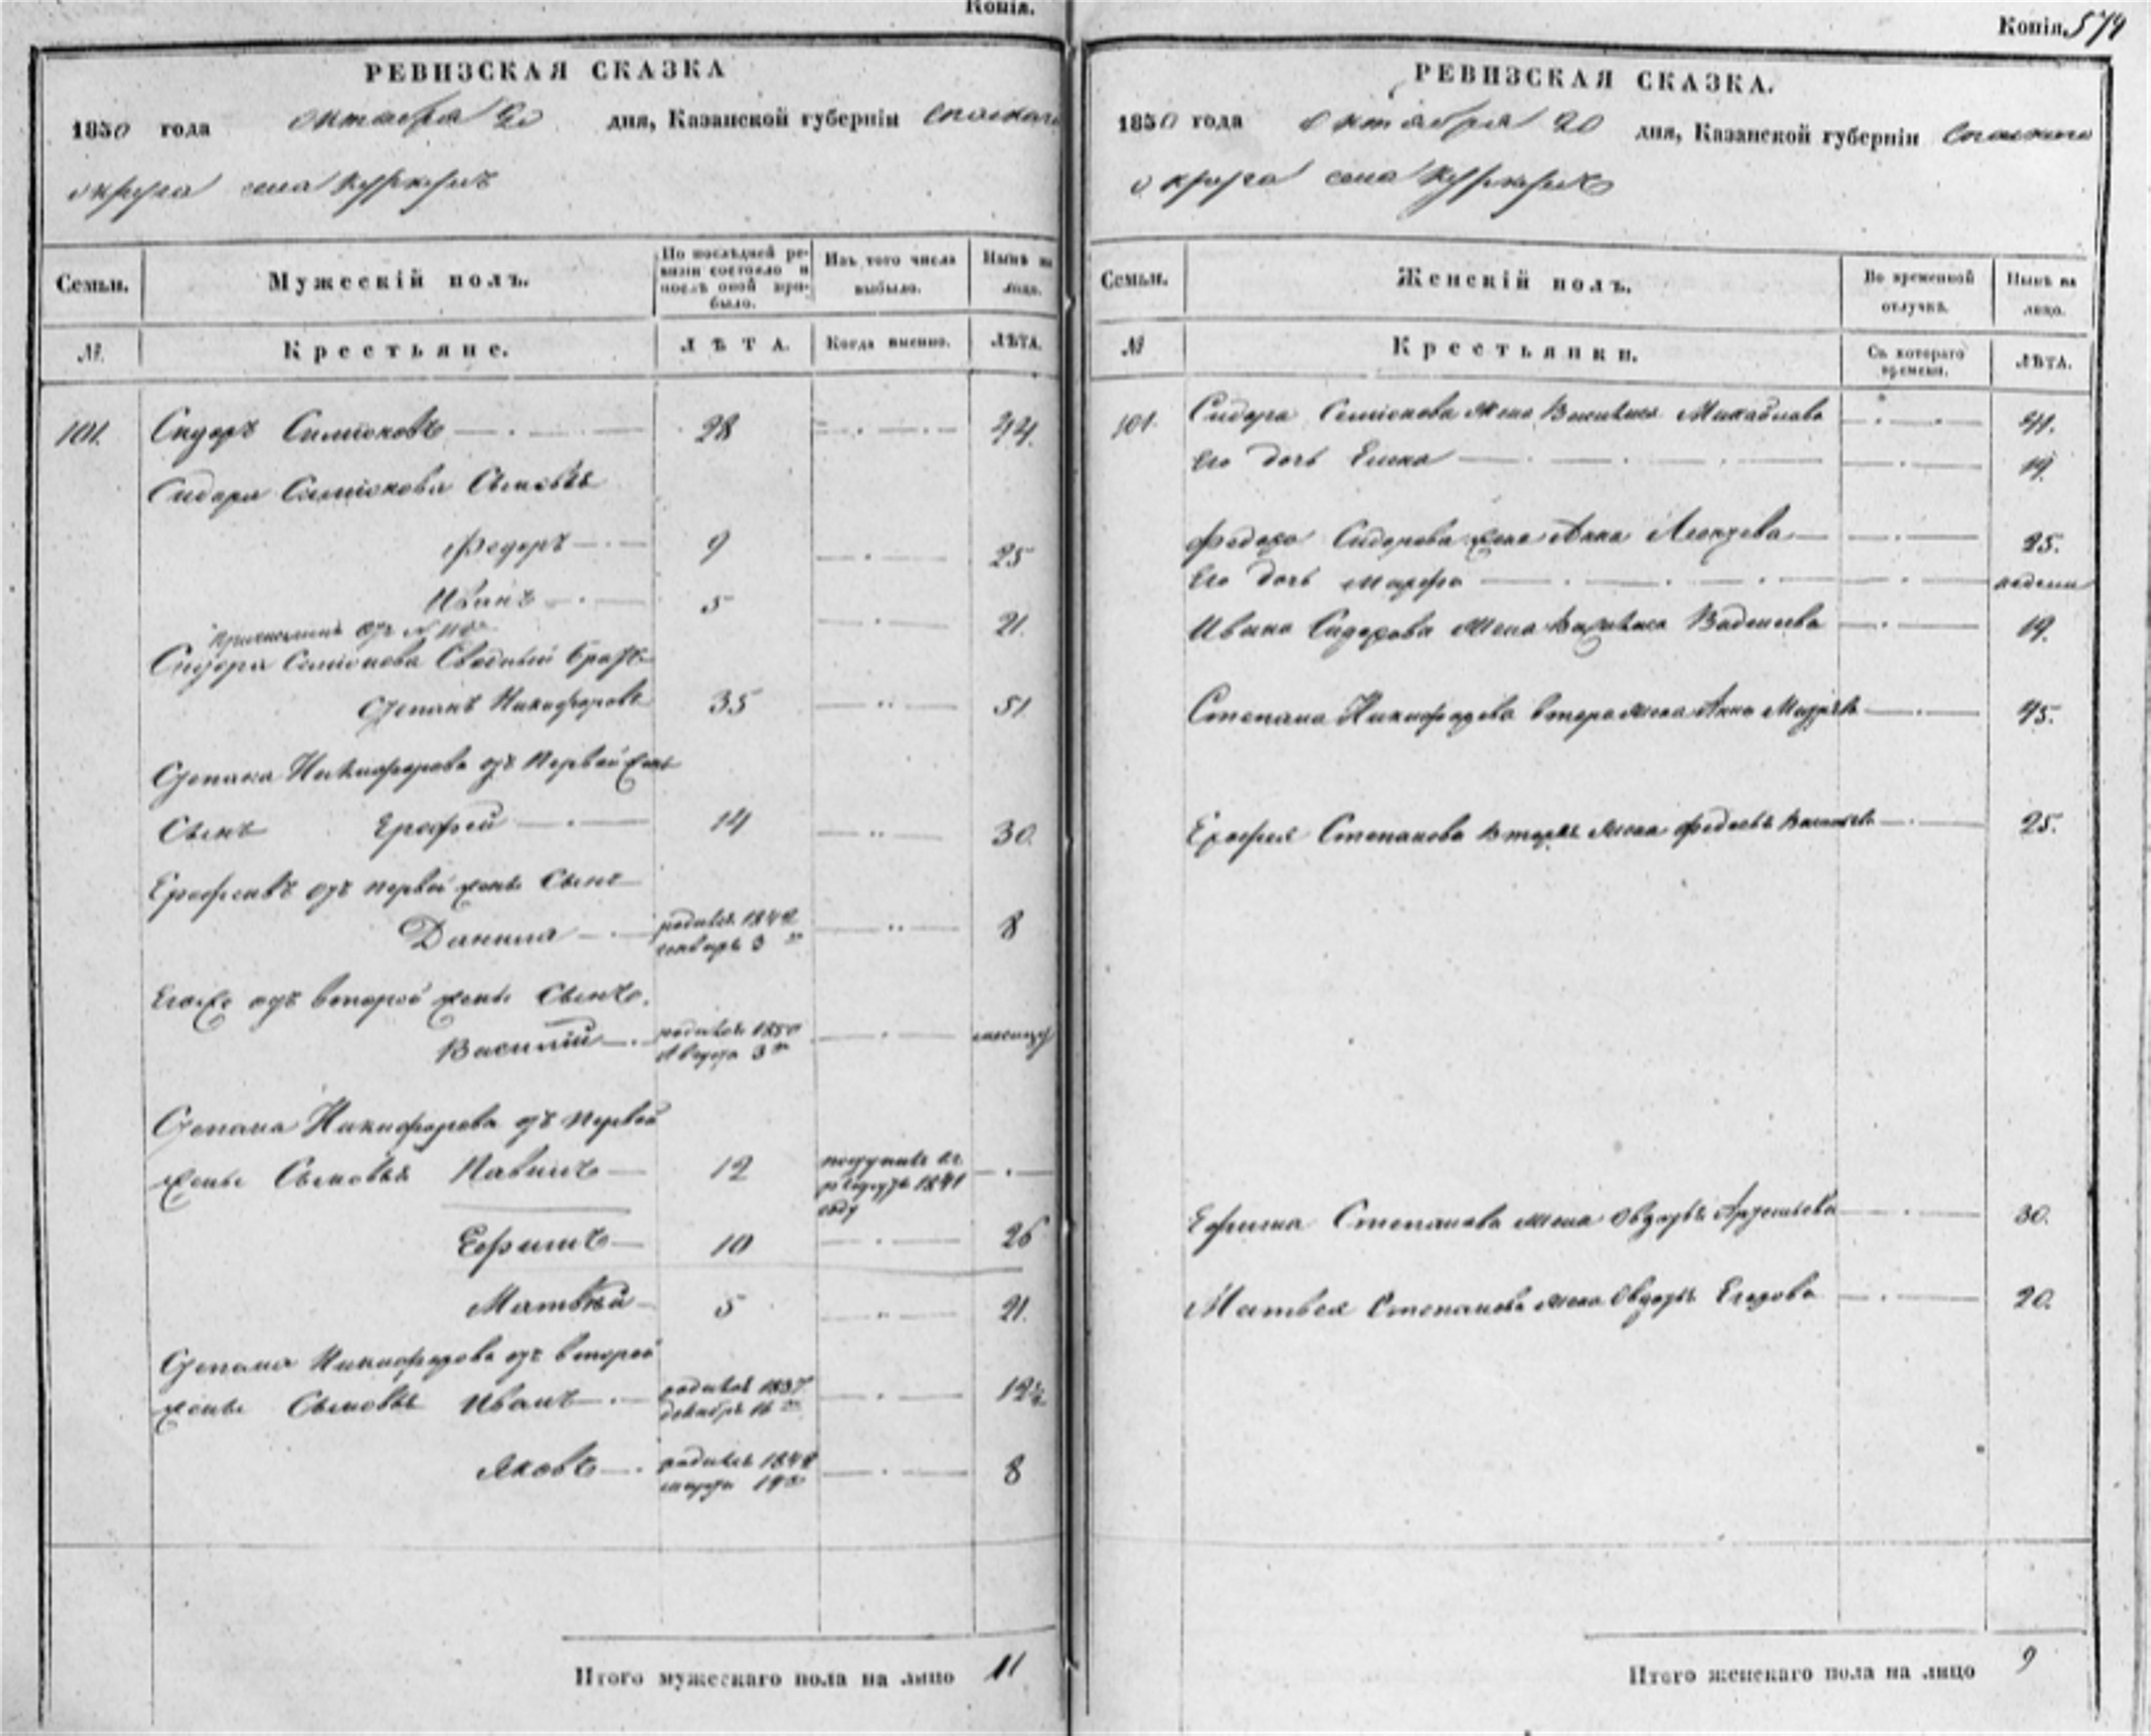 Копія.
РЕВИЗСКАЯ СКАЗКА
1850 года октября 20 дня, Казанской губерніи Спаскаго
округа села
Семьи.
Мужескій полъ.
По послѣдней ревизіи состояло и послѣ оной прибыло.
Изъ того числа выбыло.
Нынѣ на лицо.
№.
Крестьяне.
ЛѢТА.
Когда именно.
ЛѢТА.
101. Сидоръ Симіоновъ 28 44.
Сидора Симіонова Сыновья
Федоръ 9 25
Иванъ 5 21.
Сидора Семіонова Сводный братъ
Степанъ Никифоровъ 35 51
Степана Никифорова отъ Первой жены
Сынъ Ерофей 14 30.
отъ первой жены Сынъ
Данила родился 1842 генваря 3 8
Егоже отъ второй жены Сынъ.
Василій родился 1850 Августа 3
Степана Никифорова отъ Первой
жены Сыновья Павилъ 12 1841 году
Ефимъ 10 26
Матвѣй 5 21.
Степана Никифорова отъ второй
жены Сыновья Иванъ родился 1837 декабря 16 12½
Яковъ родился 1842 марта 19 8
Итого мужескаго пола на лицо 11
Копія. 579
РЕВИЗСКАЯ СКАЗКА.
1850 года октября 20 дня, Казанской губерніи Спаскаго
округа села
Семьи.
Женскій полъ.
Во временной отлучкѣ.
Нынѣ на лицо.
№
Крестьянки.
Съ котораго времени.
ЛѢТА.
101. Сидора Семіонова Жена Михайлова 41.
Его дочь 19.
Федора Сидорова жена Анна 25.
Его дочь Марфа
Ивана Сидорова Жена 19.
Степана Никифорова втора жена Анна 45.
Ерофея Степанова жена 25.
Ефима Степанова жена 30.
Матвея Степанова жена Егорова 20.
Итого женскаго пола на лицо 9